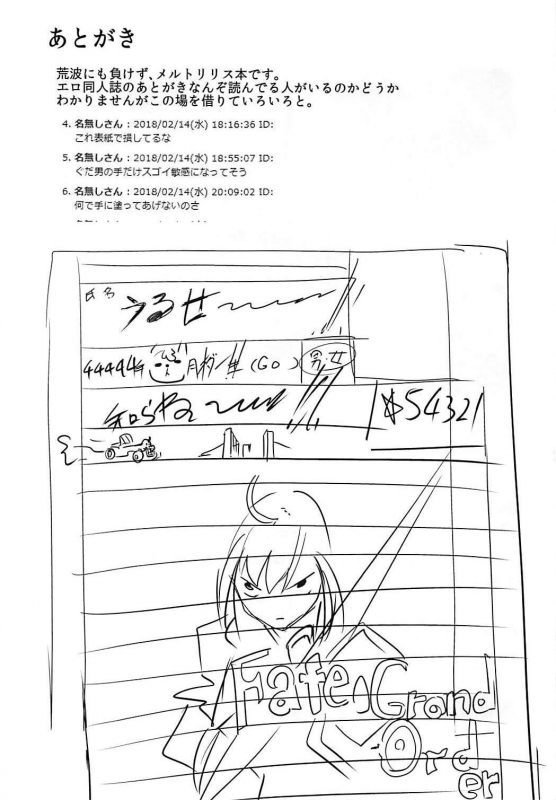 あとがき
荒波にも負けず、メルトリリス本です。
エロ同人誌のあとがきなんぞ読んでる人がいるのかどうか
わかりませんがこの場を借りていろいろと。
4. 名無しさん : 2018/02/14(水) 18:16:36 ID:
これ表紙で損してるな
5. 名無しさん : 2018/02/14(水) 18:55:07 ID:
ぐだ男の手だけスゴイ敏感になってそう
6. 名無しさん : 2018/02/14(水) 20:09:02 ID:
何で手に塗ってあげないのさ
氏名
うるせ〜〜
44444年
月 生 (Go )
男・女
知らねェ〜〜
54321
Fate
Grand
Order